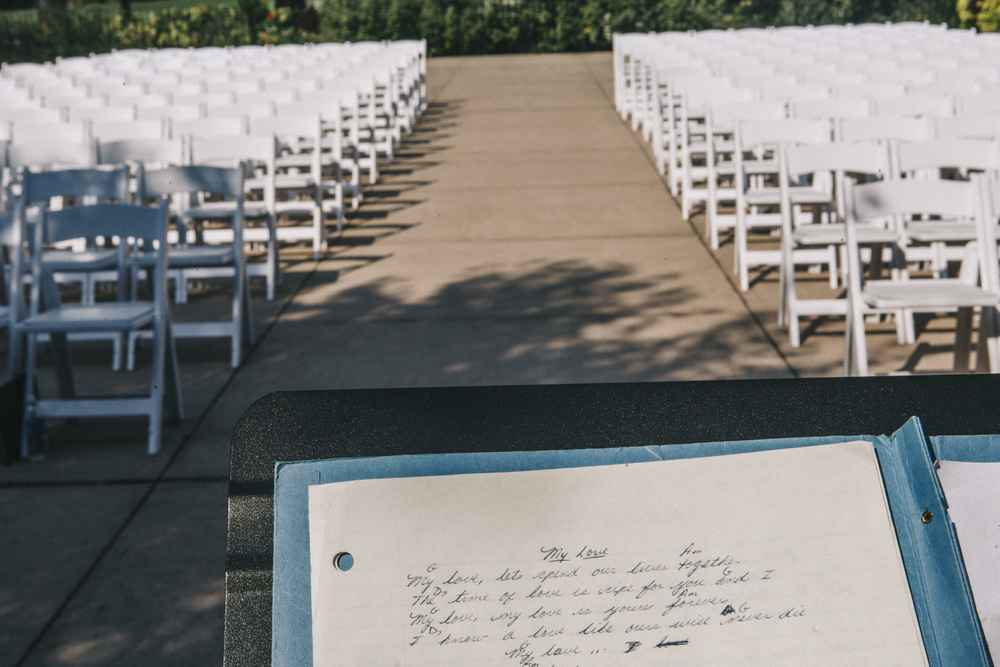 My Love
G Am
My love, lets spend our lives together
D7 G
The time of love is ripe for you and I
G Am
My love, my love is yours forever
D7 G
I know a love like ours will never die
G
My love...
Am